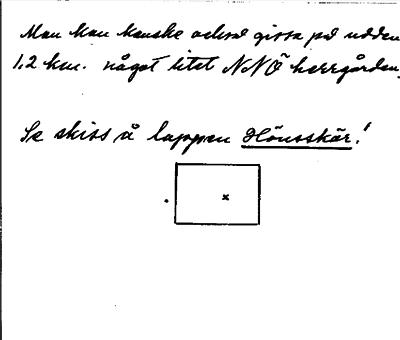 Man kan kanske också gissa på udden
1,2 km. något litet NNÖ herrgården.
Se skiss å lappen Hönsskär!
x